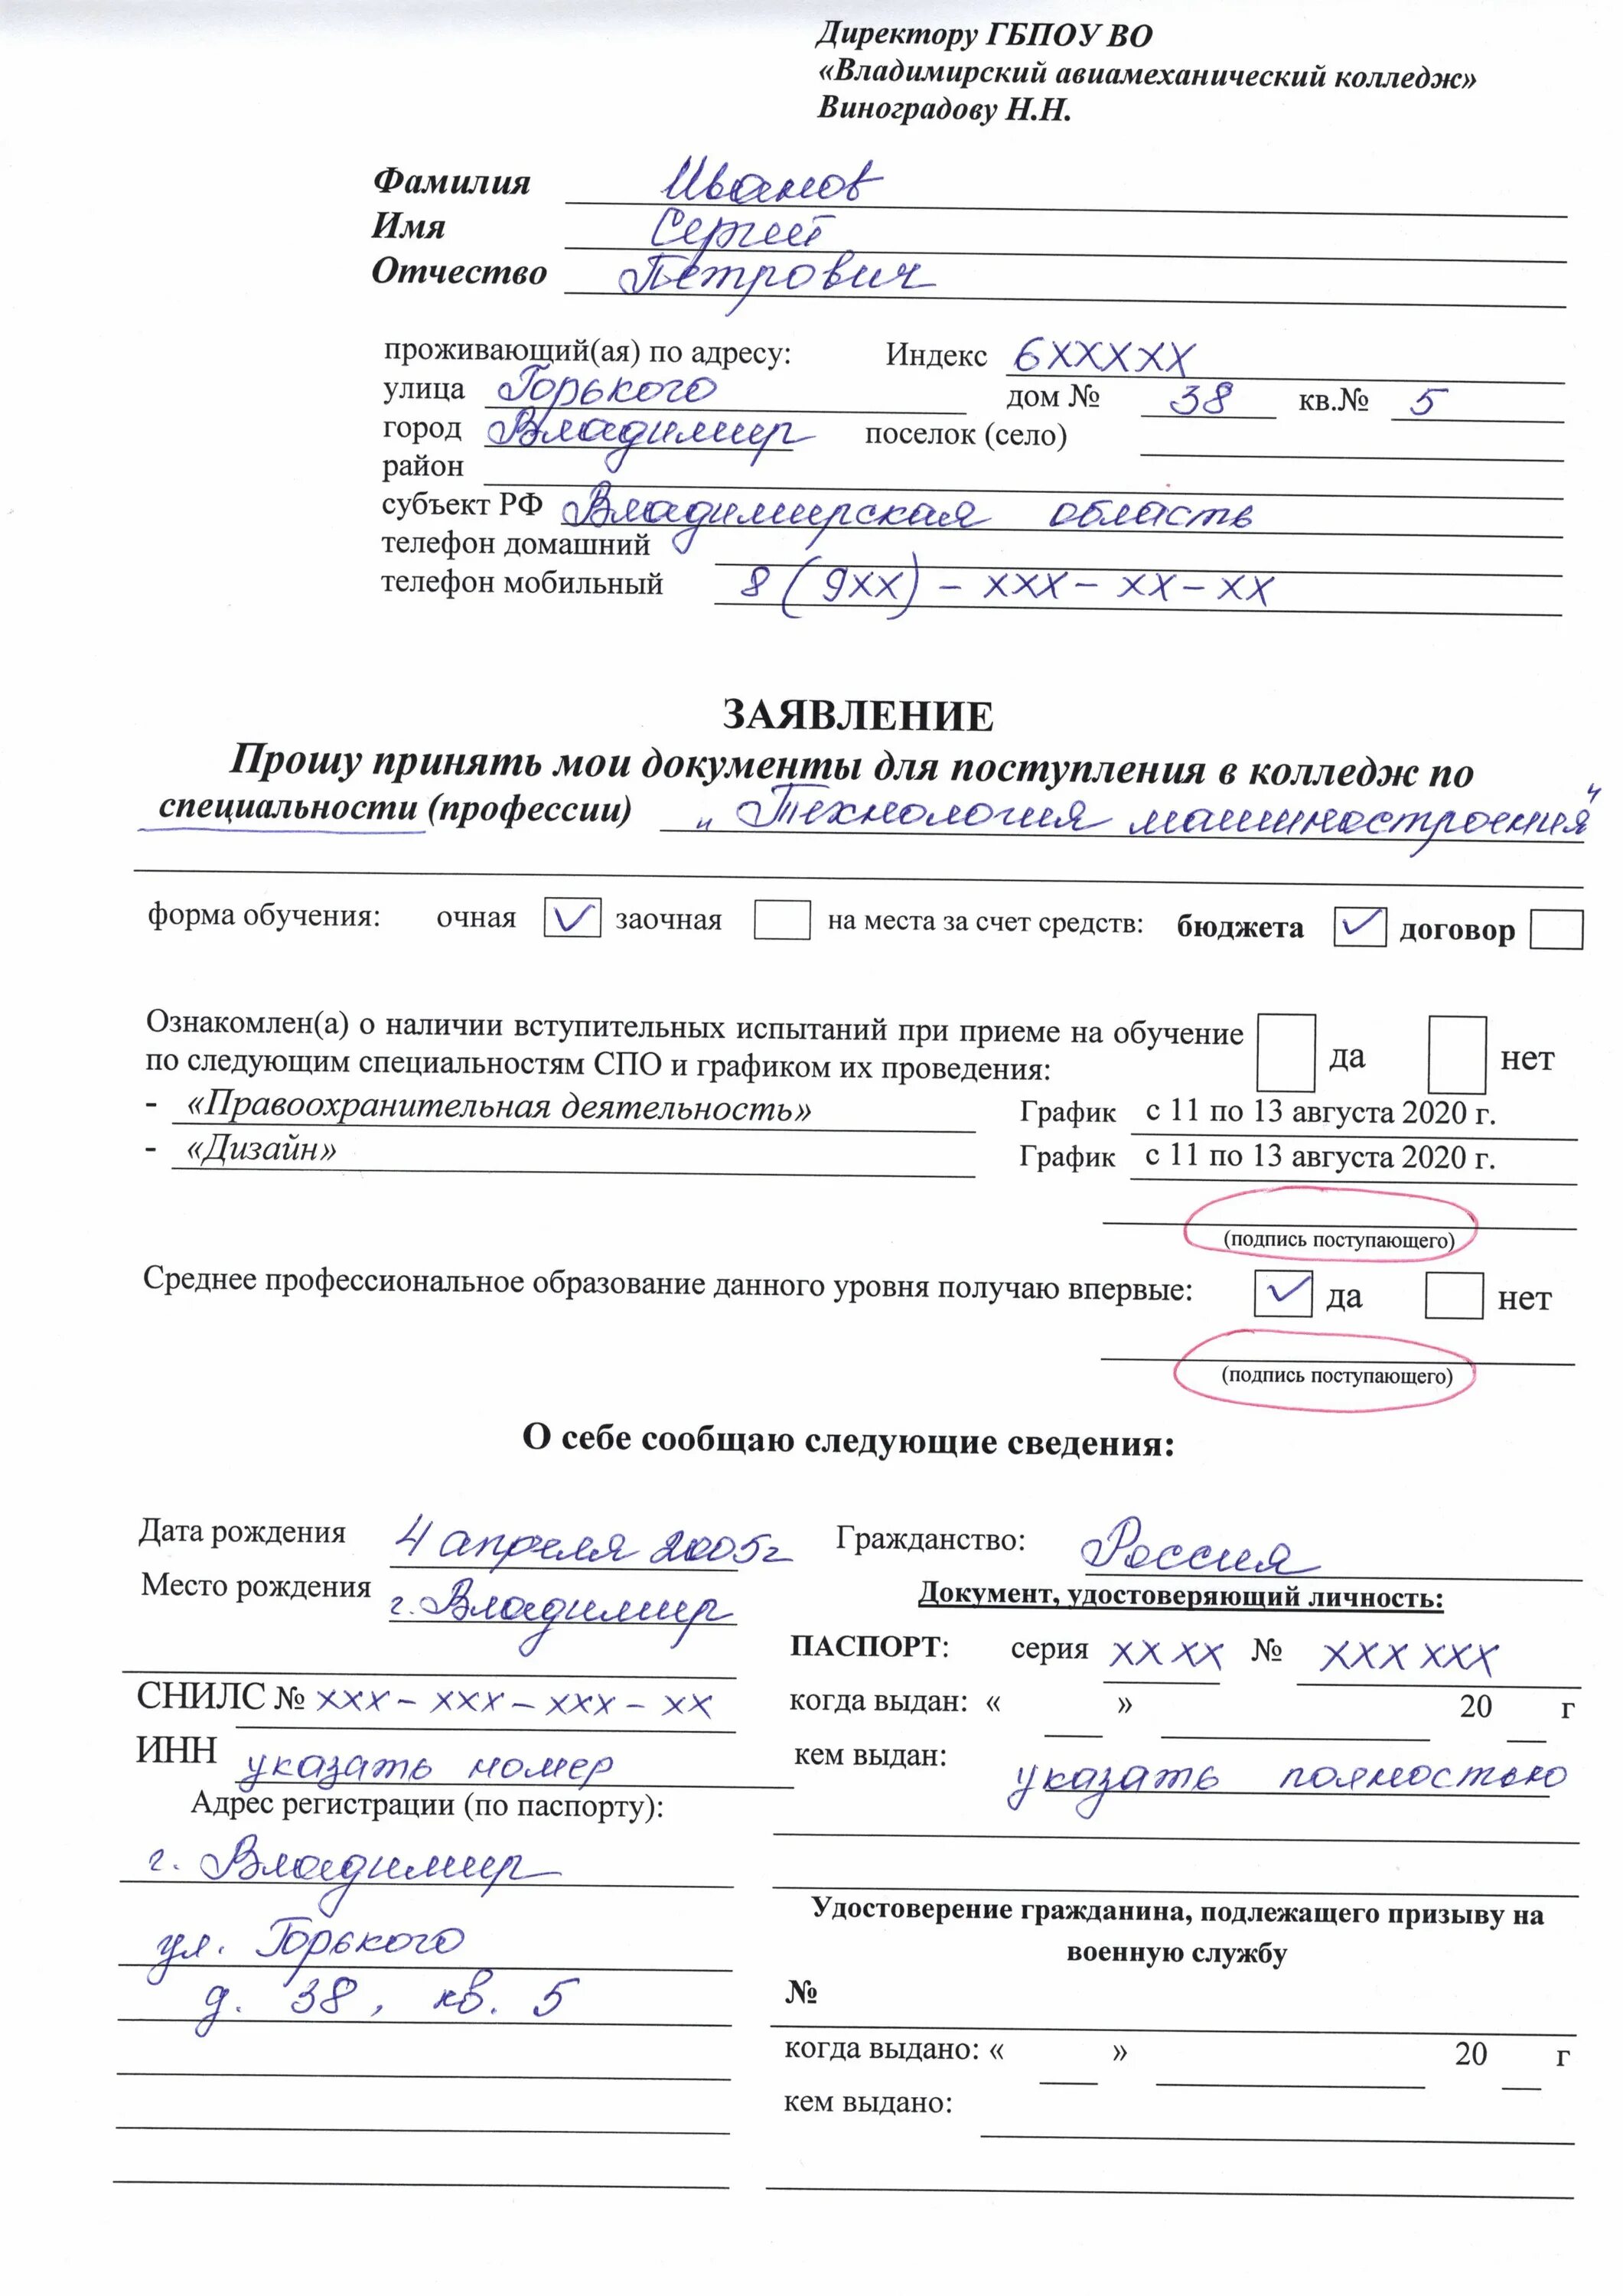 Директору ГБПОУ ВО
«Владимирский авиамеханический колледж»
Виноградову Н.Н.
Фамилия Иванов
Имя Сергей
Отчество Петрович
проживающий(ая) по адресу: Индекс 6XXXXX
улица Горького дом № 38 кв.№ 5
город Владимир поселок (село)
район
субъект РФ Владимирская область
телефон домашний
телефон мобильный 8 (9XX) – XXX – XX – XX
ЗАЯВЛЕНИЕ
Прошу принять мои документы для поступления в колледж по
специальности (профессии) "Технология машиностроения"
форма обучения: очная заочная на места за счет средств: бюджета договор
Ознакомлен(а) о наличии вступительных испытаний при приеме на обучение
по следующим специальностям СПО и графиком их проведения: да нет
- «Правоохранительная деятельность» График с 11 по 13 августа 2020 г.
- «Дизайн» График с 11 по 13 августа 2020 г.
(подпись поступающего)
Среднее профессиональное образование данного уровня получаю впервые: да нет
(подпись поступающего)
О себе сообщаю следующие сведения:
Дата рождения 4 апреля 2005г
Место рождения г. Владимир
СНИЛС № XXX – XXX – XXX – XX
ИНН указать номер
Адрес регистрации (по паспорту):
г. Владимир
ул. Горького
д. 38, кв. 5
Гражданство: Россия
Документ, удостоверяющий личность:
ПАСПОРТ: серия XX XX № XXX XXX
когда выдан: « » 20 г
кем выдан: указать полностью
Удостоверение гражданина, подлежащего призыву на
военную службу
№
когда выдано: « » 20 г
кем выдано: